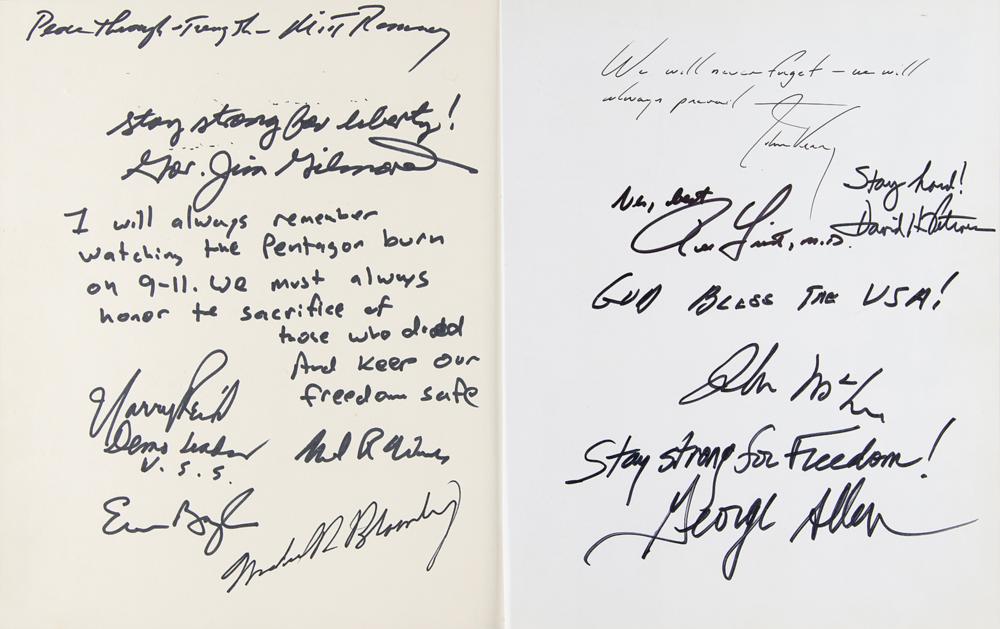 Peace through strength - Mitt Romney
stay strong for liberty!
Gov. Jim Gilmore
I will always remember
watching the Pentagon burn
on 9-11. We must always
honor te sacrifice of
those who died
And keep our
freedom safe
Harry Reid
Demo Leader
U. S. S.
Evan Bayh
Michael R Bloomberg
We will never forget - we will
always prevail
John Kerry
Stay hard!
David H Petraeus
Very best
Bill Frist, M.D.
GOD BLESS THE USA!
John McCain
Stay strong for Freedom!
George Allen